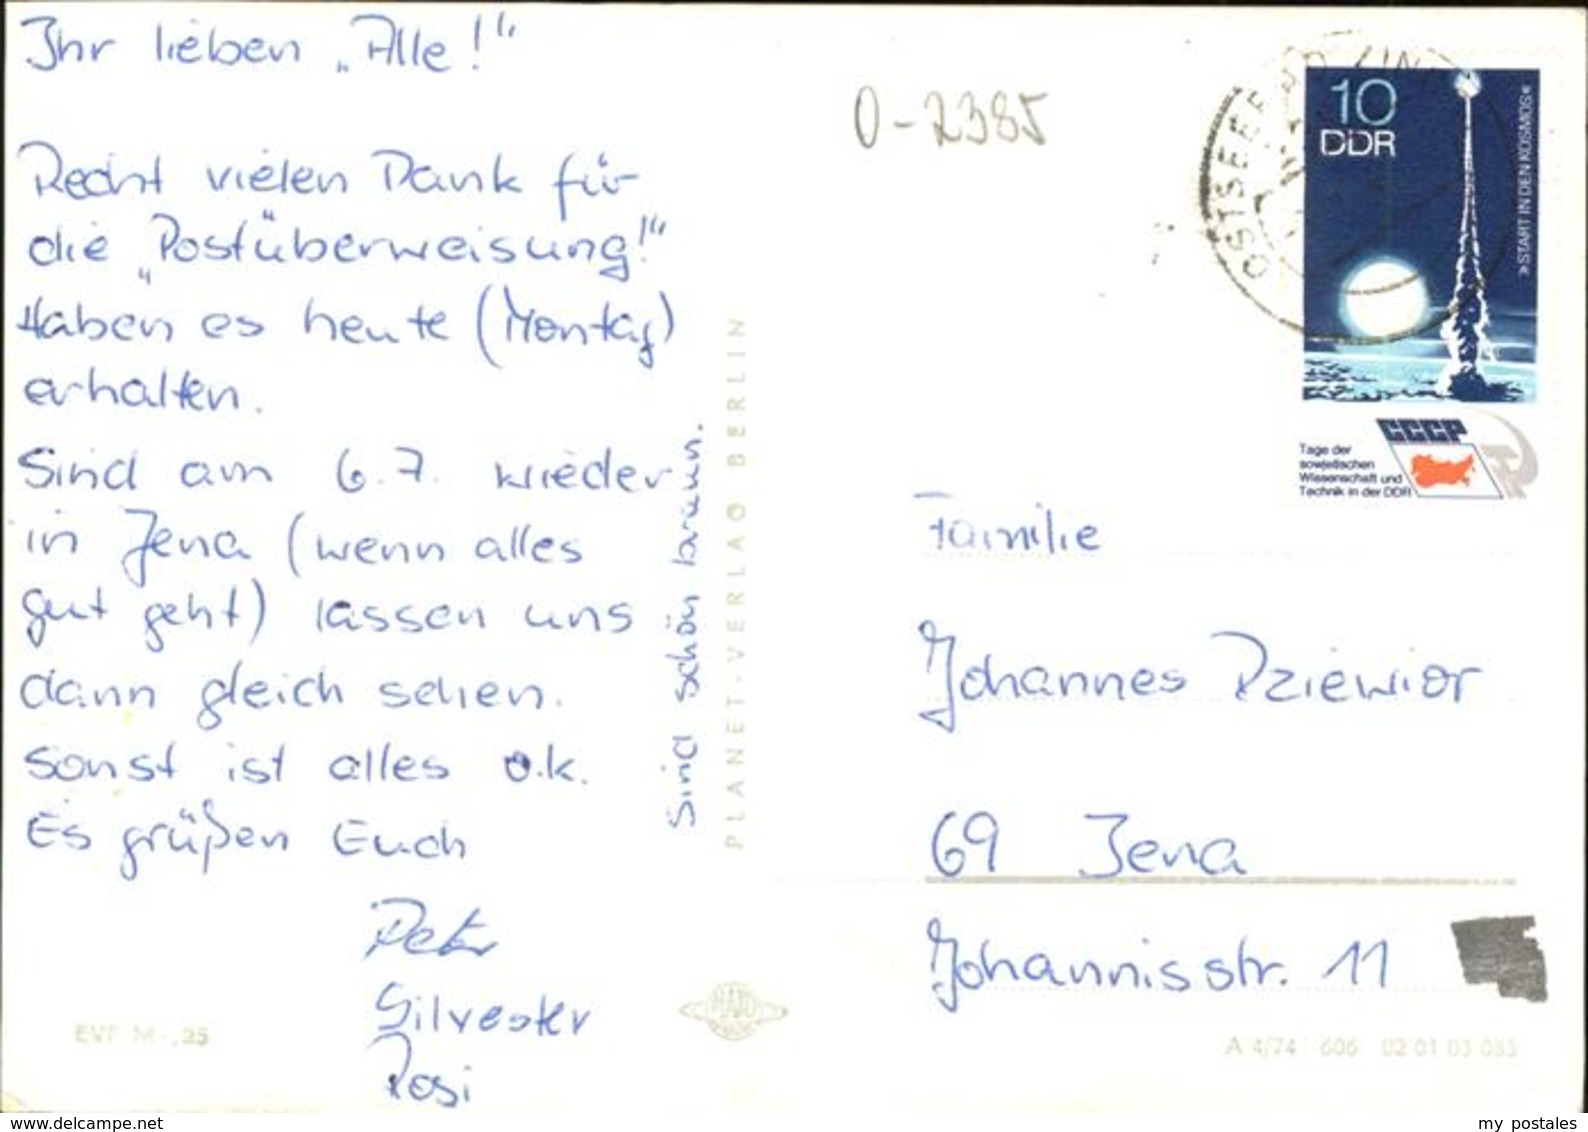 Ihr lieben „Alle!“
Recht vielen Dank für
die „Postüberweisung!“
Haben es heute (Montag)
erhalten.
Sind am 6.7. wieder
in Jena (wenn alles
gut geht) lassen uns
dann gleich sehen.
sonst ist alles o.k.
Es grüßen Euch
Peter
Silvester
Rosi
Sind schön braun.
PLANET-VERLAG BERLIN
EVP M -,25
0-2385
OSTSEEBAD ZIN
10
DDR
»START IN DEN KOSMOS«
CCCP
Tage der
sowjetischen
Wissenschaft und
Technik in der DDR
Familie
Johannes Dziewior
69 Jena
Johannisstr. 11
A 4/74 606 02 01 03 085
www.delcampe.net
my postales